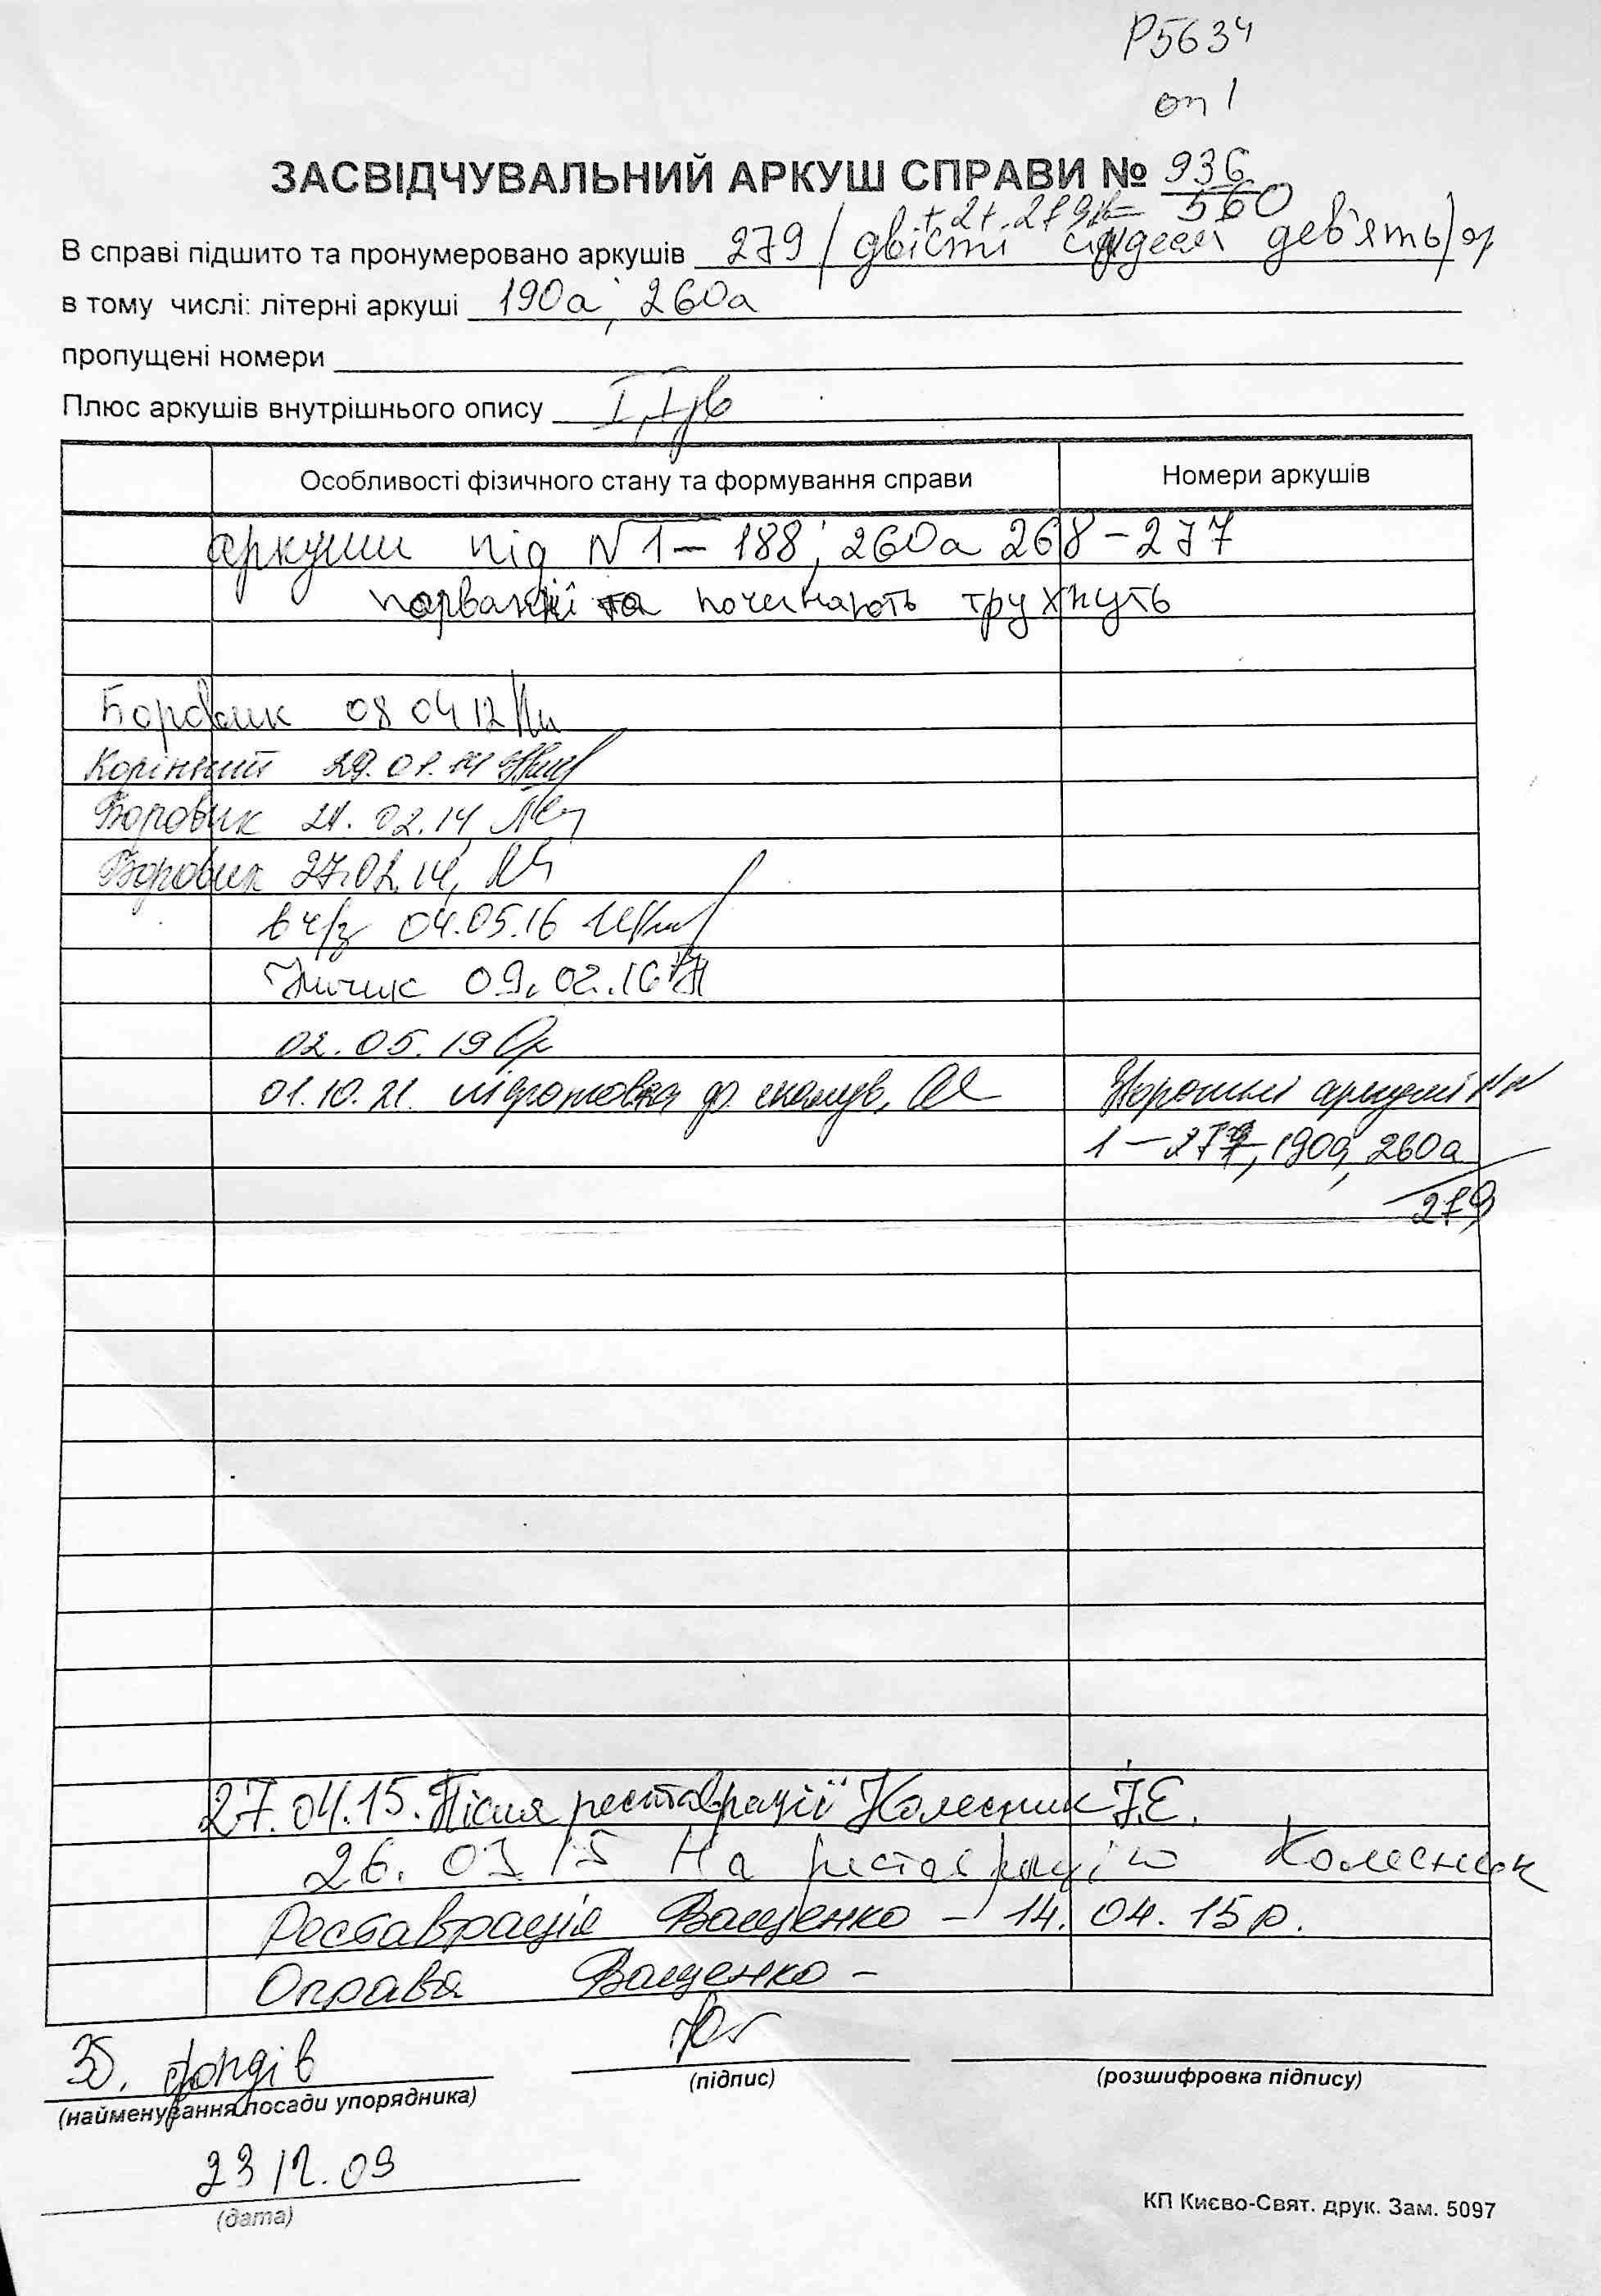 Р5634
оп 1
ЗАСВІДЧУВАЛЬНИЙ АРКУШ СПРАВИ № 936
560
В справі підшито та пронумеровано аркушів 279 / двісті сімдесят дев'ять/
в тому числі: літерні аркуші 190а, 260а
пропущені номери
Плюс аркушів внутрішнього опису
Особливості фізичного стану та формування справи Номери аркушів
аркуши під N 1 – 188, 260а 268 – 277
порванні та починають трухнуть
Боровик 08 04 12
Корінний 29.01.14
Боровик 21.02.14,
Боровик 27.02.14,
в ч/з 04.05.16
09.02.16
02.05.19
01.10.21. підготовка до сканув, Зворотні аркушів NN
1 – 277, 190а, 260а
279
27.04.15. Після реставрації Колесник
26. 03 15 На реставрацію Колесник
Реставрація Ващенко – 14. 04. 15 р.
Оправа Ващенко –
фондів
(найменування посади упорядника) (підпис) (розшифровка підпису)
23 12. 09
(дата)
КП Києво-Свят. друк. Зам. 5097